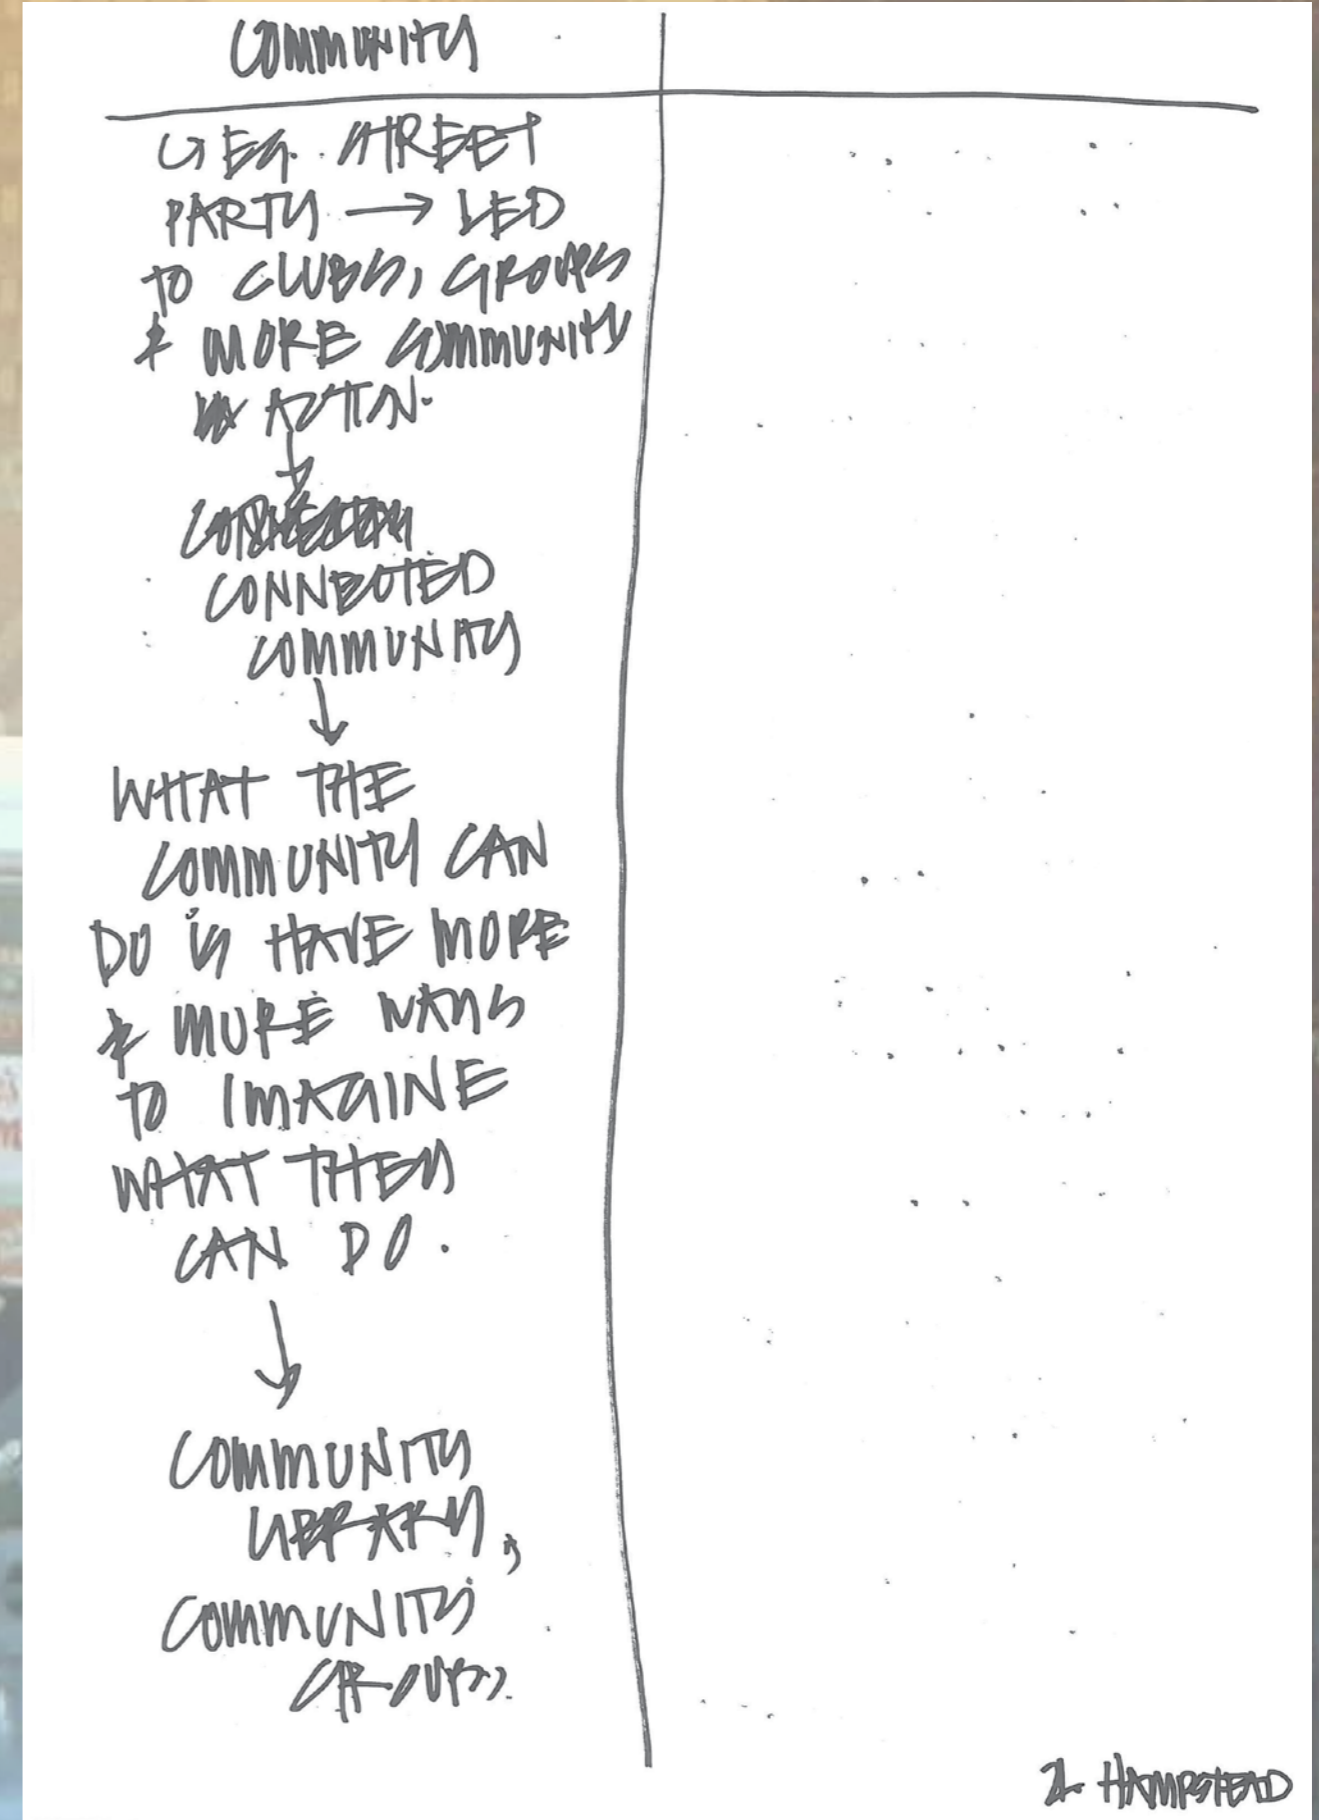 COMMUNITY
↳ EG. STREET
PARTY → LED
TO CLUBS, GROUPS
& MORE COMMUNITY
ACTION.
↓
CONNECTED
COMMUNITY
↓
WHAT THE
COMMUNITY CAN
DO IS HAVE MORE
& MORE WAYS
TO IMAGINE
WHAT THEY
CAN DO.
↓
COMMUNITY
LIBRARY,
COMMUNITY
GROUPS.
2. HAMPSTEAD